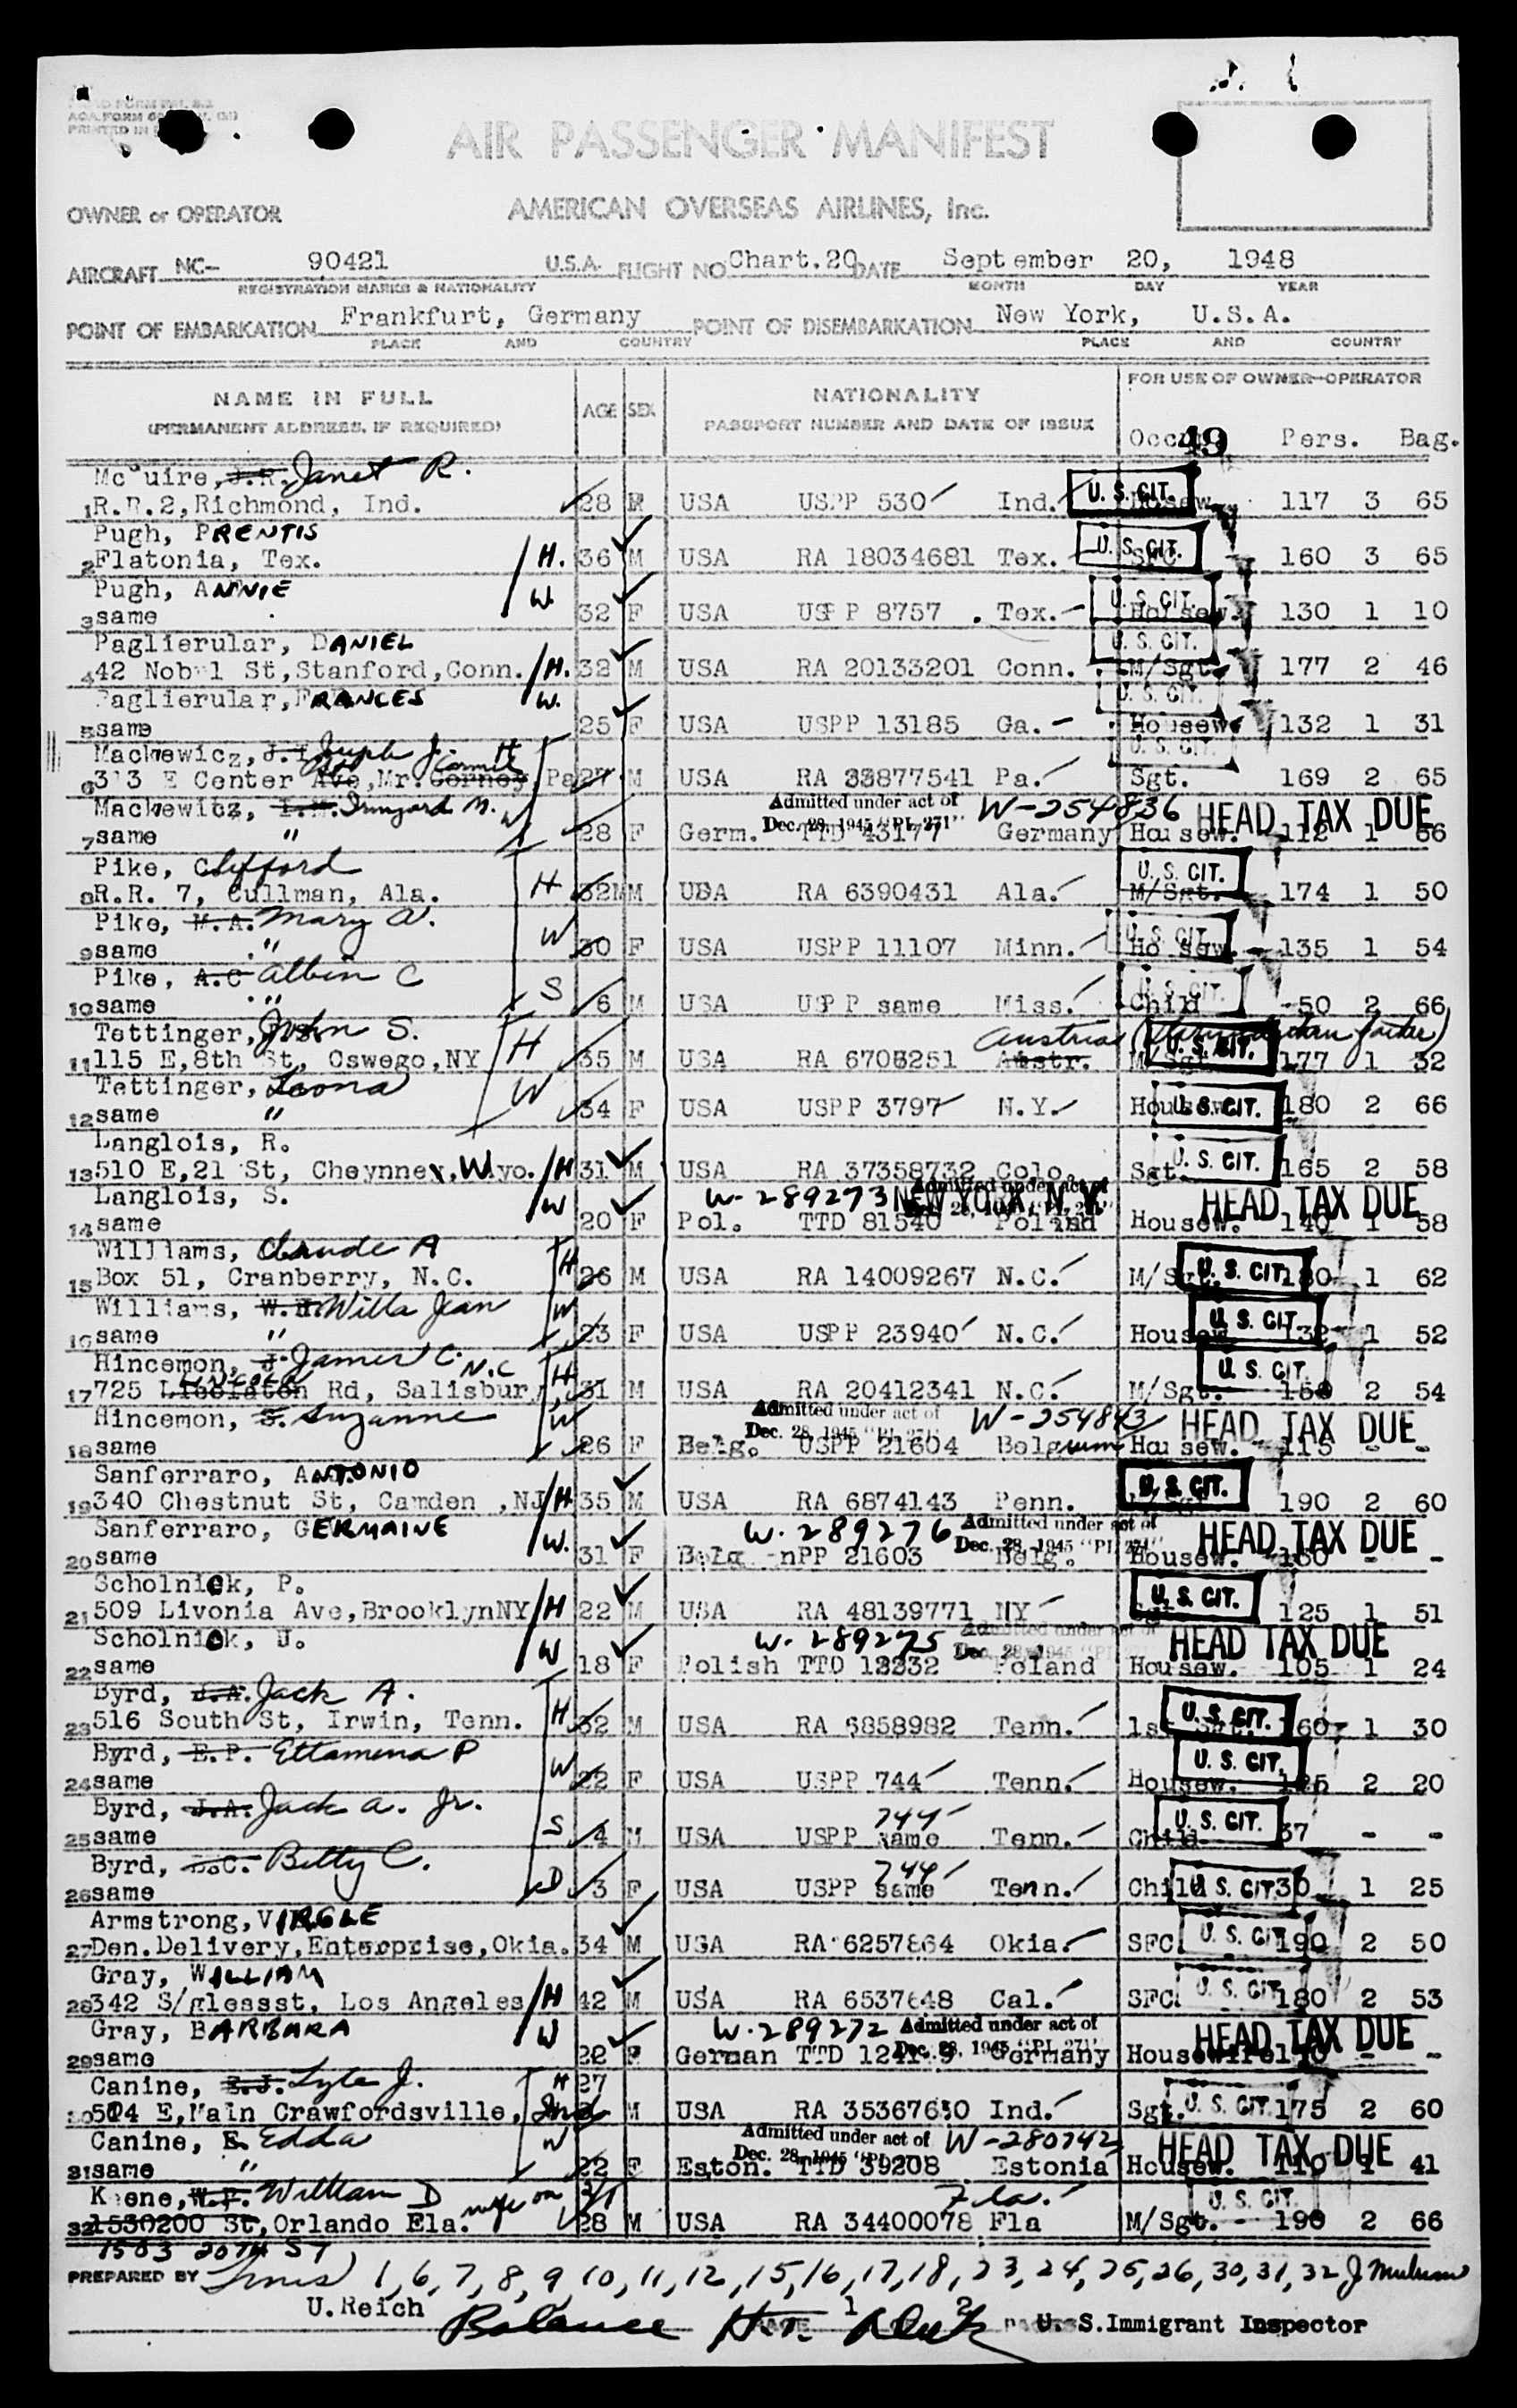 AIR PASSENGER MANIFEST
OWNER or OPERATOR AMERICAN OVERSEAS AIRLINES, Inc.
AIRCRAFT NC- 90421 U.S.A. FLIGHT NO Chart.20 DATE September 20, 1948
REGISTRATION MARKS & NATIONALITY MONTH DAY YEAR
POINT OF EMBARKATION Frankfurt, Germany POINT OF DISEMBARKATION New York, U.S.A.
PLACE AND COUNTRY PLACE AND COUNTRY
NAME IN FULL AGE SEX NATIONALITY FOR USE OF OWNER-OPERATOR
(PERMANENT ADDRESS, IF REQUIRED) PASSPORT NUMBER AND DATE OF ISSUE 49 Pers. Bag.
McGuire, J.R. Janet R.
1 R.R.2, Richmond, Ind. 28 F USA USPP 530 Ind. U. S. CIT. Housew. 117 3 65
Pugh, PRENTIS
2 Flatonia, Tex. H. 36 M USA RA 18034681 Tex. U. S. CIT. SFC 160 3 65
Pugh, ANNIE
3 same W. 32 F USA USP P 8757 . Tex. U. S. CIT. Housew. 130 1 10
Paglierular, DANIEL
4 42 Nobel St, Stanford, Conn. H. 32 M USA RA 20133201 Conn. U. S. CIT. M/Sgt. 177 2 46
Paglierular, FRANCES W.
5 same 25 F USA USPP 13185 Ga. U. S. CIT. Housew 132 1 31
Mackewicz, Joseph J. H
6 313 E Center Ave, Mt. Gorney Carmel, Pa 27 M USA RA 33877541 Pa. U. S. CIT. Sgt. 169 2 65
Mackewitz, I.M. Irmgard M. W Admitted under act of W-254836 HEAD TAX DUE
7 same " 28 F Germ. TTD 43177 Dec. 28, 1945 "PL 271" Germany Housew. 112 1 66
Pike, Clifford
8 R.R. 7, Cullman, Ala. H 32 M USA RA 6390431 Ala. U. S. CIT. M/Sgt. 174 1 50
Pike, M.A. Mary A.
9 same " W 30 F USA USPP 11107 Minn. U. S. CIT. Housew. 135 1 54
Pike, A.C Albin C
10 same " S 6 M USA USP P same Miss. U. S. CIT. Child 50 2 66
Tettinger, John S. Austria
11 115 E, 8th St, Oswego, NY H 35 M USA RA 6706251 Austr. U. S. CIT. M/Sgt 177 1 32
Tettinger, Leona
12 same " W 34 F USA USPP 3797 N.Y. Housew. U. S. CIT. 180 2 66
Langlois, R.
13 510 E, 21 St, Cheynney, Wyo. H 31 M USA RA 37358732 Colo. Sgt. U. S. CIT. 165 2 58
Langlois, S. W W-289273 NEW YORK, N. Y. Admitted under act of HEAD TAX DUE
14 same 20 F Pol. TTD 81540 Poland Housew. 140 1 58
Williams, Claude A
15 Box 51, Cranberry, N.C. H 26 M USA RA 14009267 N.C. M/Sgt. U. S. CIT. 180 1 62
Williams, W.J. Willa Jean
16 same " W 23 F USA USPP 23940 N.C. Housew. U. S. CIT. 132 1 52
Hincemon, J. James C. N.C
17 725 Lincoln Rd, Salisbury H 31 M USA RA 20412341 N.C. M/Sgt. U. S. CIT. 2 54
Hincemon, S. Suzanne W Admitted under act of W-254843 HEAD TAX DUE
18 same 26 F Belg. USPP 21604 Dec. 28, 1945 "PL 271" Belgium Housew. 115 - -
Sanferraro, ANTONIO
19 340 Chestnut St, Camden ,NJ H 35 M USA RA 6874143 Penn. U. S. CIT. 190 2 60
Sanferraro, GERMAINE W. W-289276 Admitted under act of HEAD TAX DUE
20 same 31 F Belg PP 21603 Dec. 28, 1945 "PL 271" Belg. Housew. 130 - -
Scholnick, P.
21 509 Livonia Ave, BrooklynNY H 22 M USA RA 48139771 NY U. S. CIT. 125 1 51
Scholnick, U. W W-289275 Admitted under act of HEAD TAX DUE
22 same 18 F Polish TTD 12232 Dec. 28, 1945 Poland Housew. 105 1 24
Byrd, J.A. Jack A.
23 516 South St, Irwin, Tenn. H 32 M USA RA 6858982 Tenn. U. S. CIT. 160 1 30
Byrd, E.P. Ettamena P
24 same W 22 F USA USPP 744 Tenn. Housew. U. S. CIT. 125 2 20
Byrd, J.A. Jack A. Jr. 744
25 same S 4 M USA USPP same Tenn. Child U. S. CIT. 37 - -
Byrd, B.C. Betty C. 744
26 same D 3 F USA USPP same Tenn. Child U. S. CIT. 30 1 25
Armstrong, VIRGLE
27 Den. Delivery, Enterprise, Okia. 34 M USA RA 6257864 Okia. SFC. U. S. CIT. 190 2 50
Gray, WILLIAM
28 342 S/glessst, Los Angeles H 42 M USA RA 6537648 Cal. SFC. U. S. CIT. 180 2 53
Gray, BARBARA W W-289272 Admitted under act of HEAD TAX DUE
29 same 22 F German TTD Dec. 28, 1945 "PL 271" Germany Housewife - -
Canine, Lyle J. H 27
30 504 E, Main Crawfordsville, Ind M USA RA 35367630 Ind. Sgt. U. S. CIT. 175 2 60
Canine, E. Edda W Admitted under act of W-280742 HEAD TAX DUE
31 same " 22 F Eston. TTD 39208 Dec. 28, 1945 Estonia Housew. 110 1 41
Keene, W.F. William D wife on Fla.
32 1530200 St, Orlando Fla. 28 M USA RA 34400078 Fla M/Sgt. U. S. CIT. 190 2 66
1503 20TH ST
PREPARED BY 1, 6, 7, 8, 9, 10, 11, 12, 15, 16, 17, 18, 23, 24, 25, 26, 30, 31, 32
U. Reich 1 2
Balance U. S. Immigrant Inspector